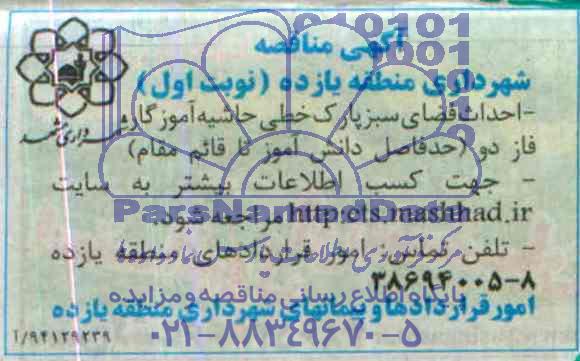 آگهی مناقصه
شهرداری منطقه یازده (نوبت اول)
شهرداری مشهد
-احداث فضای سبز پارک خطی حاشیه آموزگار
فاز دو (حدفاصل دانش آموز تا قائم مقام)
- جهت کسب اطلاعات بیشتر به سایت
http:cts.mashhad.ir مراجعه شود.
- تلفن تماس: امور قراردادهای منطقه یازده
۳۸۶۹۴۰۰۵-۸
امور قراردادها و پیمانهای شهرداری منطقه یازده
۹۴۱۲۹۲۳۹/آ
ParsNamadData
پایگاه اطلاع رسانی مناقصه و مزایده
۰۲۱-۸۸۳۴۹۶۷۰-۵